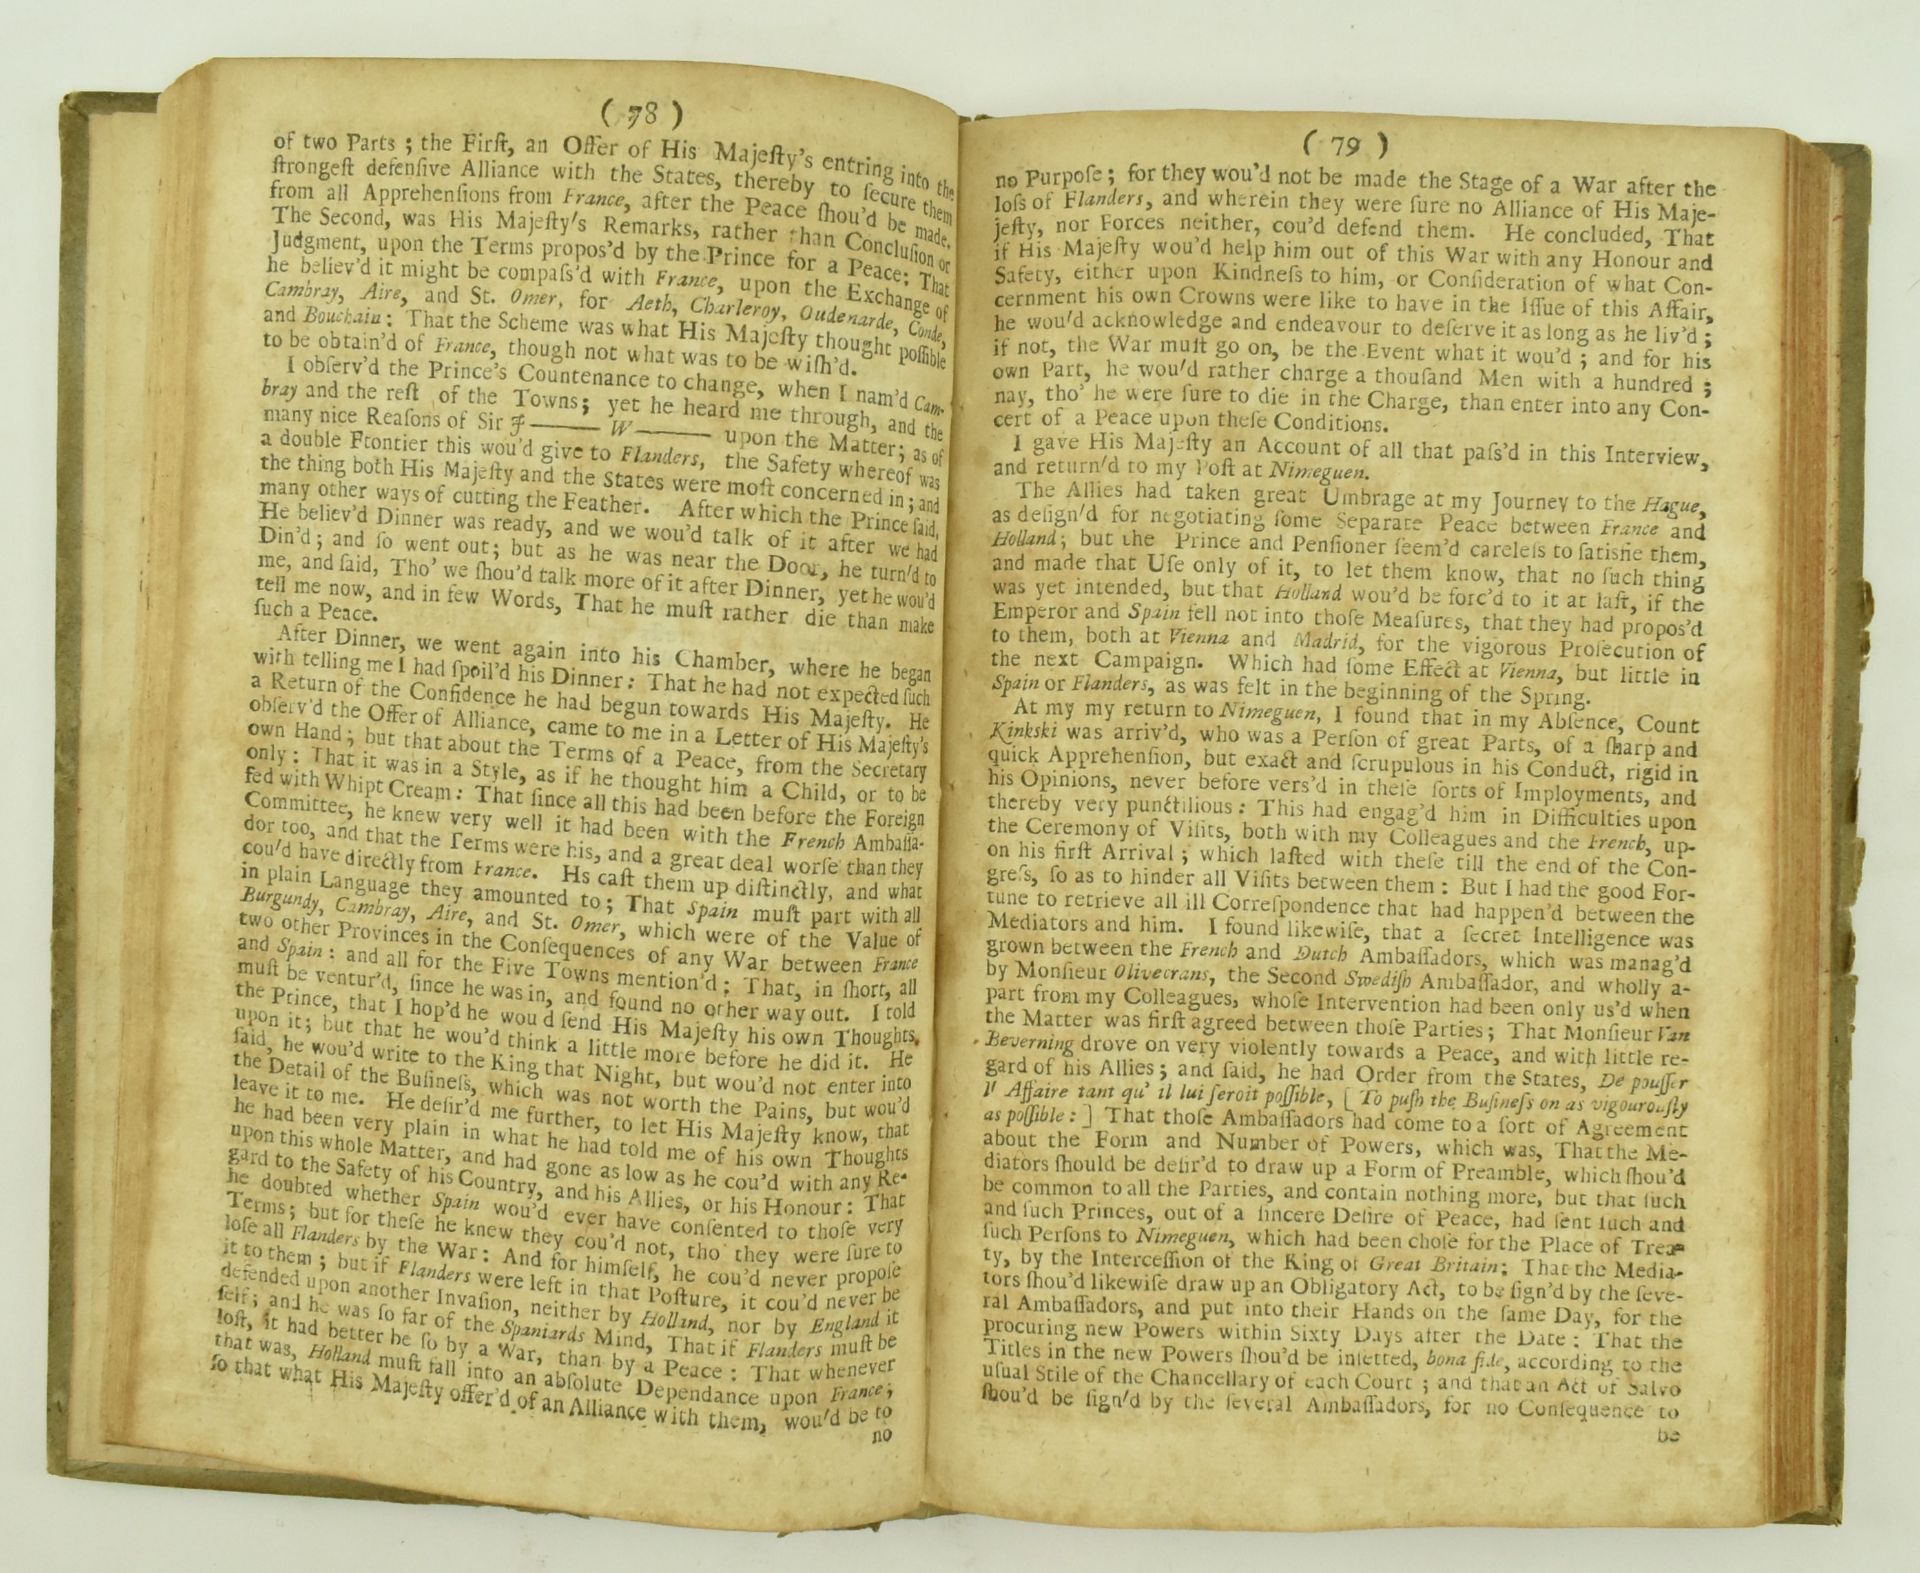 ( 78 )
of two Parts ; the Firſt, an Offer of His Majeſty's entring into the
ſtrongeſt defenſive Alliance with the States, thereby to ſecure them
from all Apprehenſions from France, after the Peace ſhou'd be made.
The Second, was His Majeſty's Remarks, rather than Concluſion or
Judgment, upon the Terms propos'd by the Prince for a Peace: That
he believ'd it might be compaſs'd with France, upon the Exchange of
Cambray, Aire, and St. Omer, for Aeth, Charleroy, Oudenarde, Conde,
and Bouchain: That the Scheme was what His Majeſty thought poſſible
to be obtain'd of France, though not what was to be wiſh'd.
I obſerv'd the Prince's Countenance to change, when I nam'd Cam-
bray and the reſt of the Towns; yet he heard me through, and the
many nice Reaſons of Sir J——— W——— upon the Matter; as of
a double Frontier this wou'd give to Flanders, the Safety whereof was
the thing both His Majeſty and the States were moſt concerned in; and
many other ways of cutting the Feather. After which the Prince ſaid,
He believ'd Dinner was ready, and we wou'd talk of it after we had
Din'd; and ſo went out; but as he was near the Door, he turn'd to
me, and ſaid, Tho' we ſhou'd talk more of it after Dinner, yet he wou'd
tell me now, and in few Words, That he muſt rather die than make
ſuch a Peace.
After Dinner, we went again into his Chamber, where he began
with telling me I had ſpoil'd his Dinner: That he had not expected ſuch
a Return of the Confidence he had begun towards His Majeſty. He
obſerv'd the Offer of Alliance, came to me in a Letter of His Majeſty's
own Hand; but that about the Terms of a Peace, from the Secretary
only: That it was in a Style, as if he thought him a Child, or to be
fed with Whipt Cream: That ſince all this had been before the Foreign
Committee, he knew very well it had been with the French Ambaſſa-
dor too, and that the Terms were his, and a great deal worſe than they
cou'd have directly from France. Hs caſt them up diſtinctly, and what
in plain Language they amounted to; That Spain muſt part with all
Burgundy, Cambray, Aire, and St. Omer, which were of the Value of
two other Provinces in the Conſequences of any War between France
and Spain: and all for the Five Towns mention'd; That, in ſhort, all
muſt be ventur'd, ſince he was in, and found no other way out. I told
the Prince, that I hop'd he wou d ſend His Majeſty his own Thoughts,
upon it; but that he wou'd think a little more before he did it. He
ſaid, he wou'd write to the King that Night, but wou'd not enter into
the Detail of the Buſineſs, which was not worth the Pains, but wou'd
leave it to me. He deſir'd me further, to let His Majeſty know, that
he had been very plain in what he had told me of his own Thoughts
upon this whole Matter, and had gone as low as he cou'd with any Re-
gard to the Safety of his Country, and his Allies, or his Honour: That
he doubted whether Spain wou'd ever have conſented to thoſe very
Terms; but for theſe he knew they cou'd not, tho they were ſure to
loſe all Flanders by the War: And for himſelf, he cou'd never propoſe
it to them ; but if Flanders were left in that Poſture, it cou'd never be
defended upon another Invaſion, neither by Holland, nor by England it
ſelf; and he was ſo far of the Spaniards Mind, That if Flanders muſt be
loſt, it had better be ſo by a War, than by a Peace : That whenever
that was, Holland muſt fall into an abſolute Dependance upon France;
ſo that what His Majeſty offer'd of an Alliance with them, wou'd be to
no
( 79 )
no Purpoſe; for they wou'd not be made the Stage of a War after the
loſs of Flanders, and wherein they were ſure no Alliance of His Maje-
jeſty, nor Forces neither, cou'd defend them. He concluded, That
if His Majeſty wou'd help him out of this War with any Honour and
Safety, either upon Kindneſs to him, or Conſideration of what Con-
cernment his own Crowns were like to have in the Iſſue of this Affair,
he wou'd acknowledge and endeavour to deſerve it as long as he liv'd ;
if not, the War muſt go on, be the Event what it wou'd ; and for his
own Part, he wou'd rather charge a thouſand Men with a hundred ;
nay, tho' he were ſure to die in the Charge, than enter into any Con-
cert of a Peace upon theſe Conditions.
I gave His Majeſty an Account of all that paſs'd in this Interview,
and return'd to my Poſt at Nimeguen.
The Allies had taken great Umbrage at my Journey to the Hague,
as deſign'd for negotiating ſome Separate Peace between France and
Holland; but the Prince and Penſioner ſeem'd careleſs to ſatisfie them,
and made that Uſe only of it, to let them know, that no ſuch thing
was yet intended, but that Holland wou'd be forc'd to it at laſt, if the
Emperor and Spain fell not into thoſe Meaſures, that they had propos'd
to them, both at Vienna and Madrid, for the vigorous Proſecution of
the next Campaign. Which had ſome Effect at Vienna, but little in
Spain or Flanders, as was felt in the beginning of the Spring.
At my my return to Nimeguen, I found that in my Abſence, Count
Kinkski was arriv'd, who was a Perſon of great Parts, of a ſharp and
quick Apprehenſion, but exact and ſcrupulous in his Conduct, rigid in
his Opinions, never before vers'd in theſe ſorts of Imployments, and
thereby very punctilious : This had engag'd him in Difficulties upon
the Ceremony of Viſits, both with my Colleagues and the French, up-
on his firſt Arrival ; which laſted with theſe till the end of the Con-
greſs, ſo as to hinder all Viſits between them : But I had the good For-
tune to retrieve all ill Correſpondence that had happen'd between the
Mediators and him. I found likewiſe, that a ſecret Intelligence was
grown between the French and Dutch Ambaſſadors, which was manag'd
by Monſieur Olivecrans, the Second Swediſh Ambaſſador, and wholly a-
part from my Colleagues, whoſe Intervention had been only us'd when
the Matter was firſt agreed between thoſe Parties; That Monſieur Van
Beverning drove on very violently towards a Peace, and with little re-
gard of his Allies ; and ſaid, he had Order from the States, De pouſſer
l' Affaire tant qu' il lui ſeroit poſſible, [ To puſh the Buſineſs on as vigourouſly
as poſſible : ] That thoſe Ambaſſadors had come to a ſort of Agreement
about the Form and Number of Powers, which was, That the Me-
diators ſhould be deſir'd to draw up a Form of Preamble, which ſhou'd
be common to all the Parties, and contain nothing more, but that ſuch
and ſuch Princes, out of a ſincere Deſire of Peace, had ſent ſuch and
ſuch Perſons to Nimeguen, which had been choſe for the Place of Trea-
ty, by the Interceſſion of the King of Great Britain: That the Media-
tors ſhou'd likewiſe draw up an Obligatory Act, to be ſign'd by the ſeve-
ral Ambaſſadors, and put into their Hands on the ſame Day, for the
procuring new Powers within Sixty Days after the Date : That the
Titles in the new Powers ſhou'd be inſetted, bona fide, according to the
uſual Stile of the Chancellary of each Court ; and that an Act of Salvo
ſhou'd be ſign'd by the ſeveral Ambaſſadors, for no Conſequence to
be